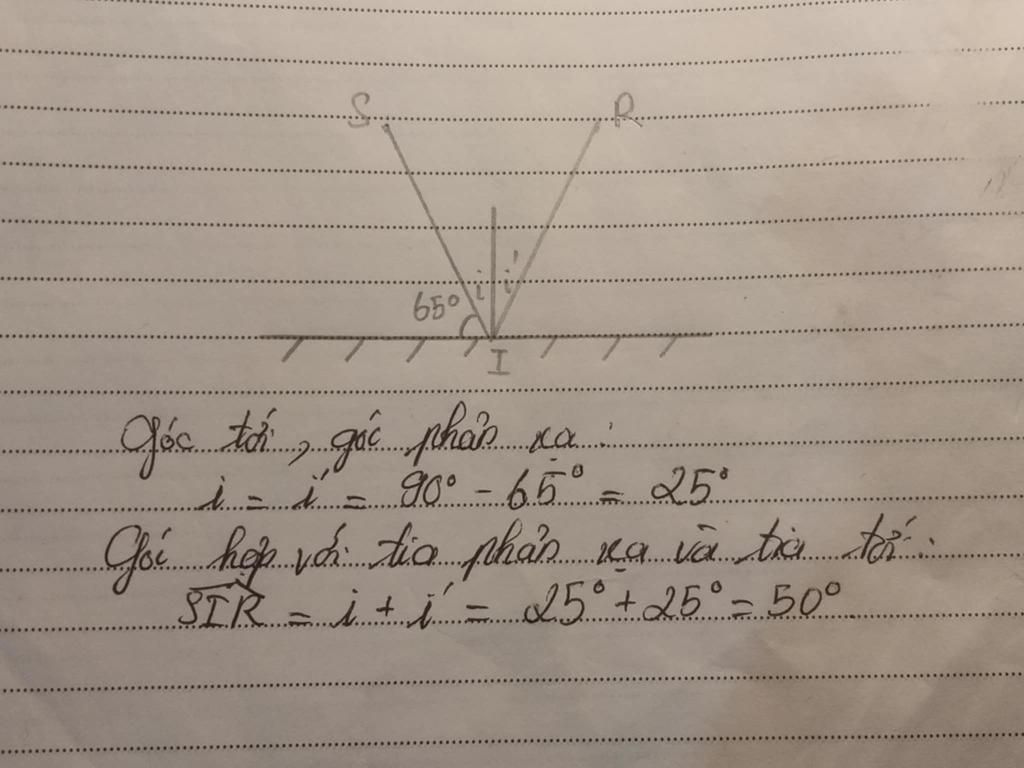 S R
i i'
65°
I
Góc tới, góc phản xạ:
i = i' = 90° - 65° = 25°
Góc hợp với tia phản xạ và tia tới:
SIR = i + i' = 25° + 25° = 50°